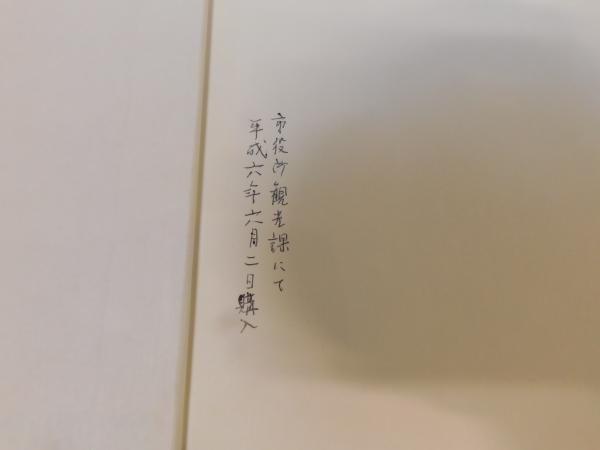 市役所観光課にて
平成六年六月二日購入